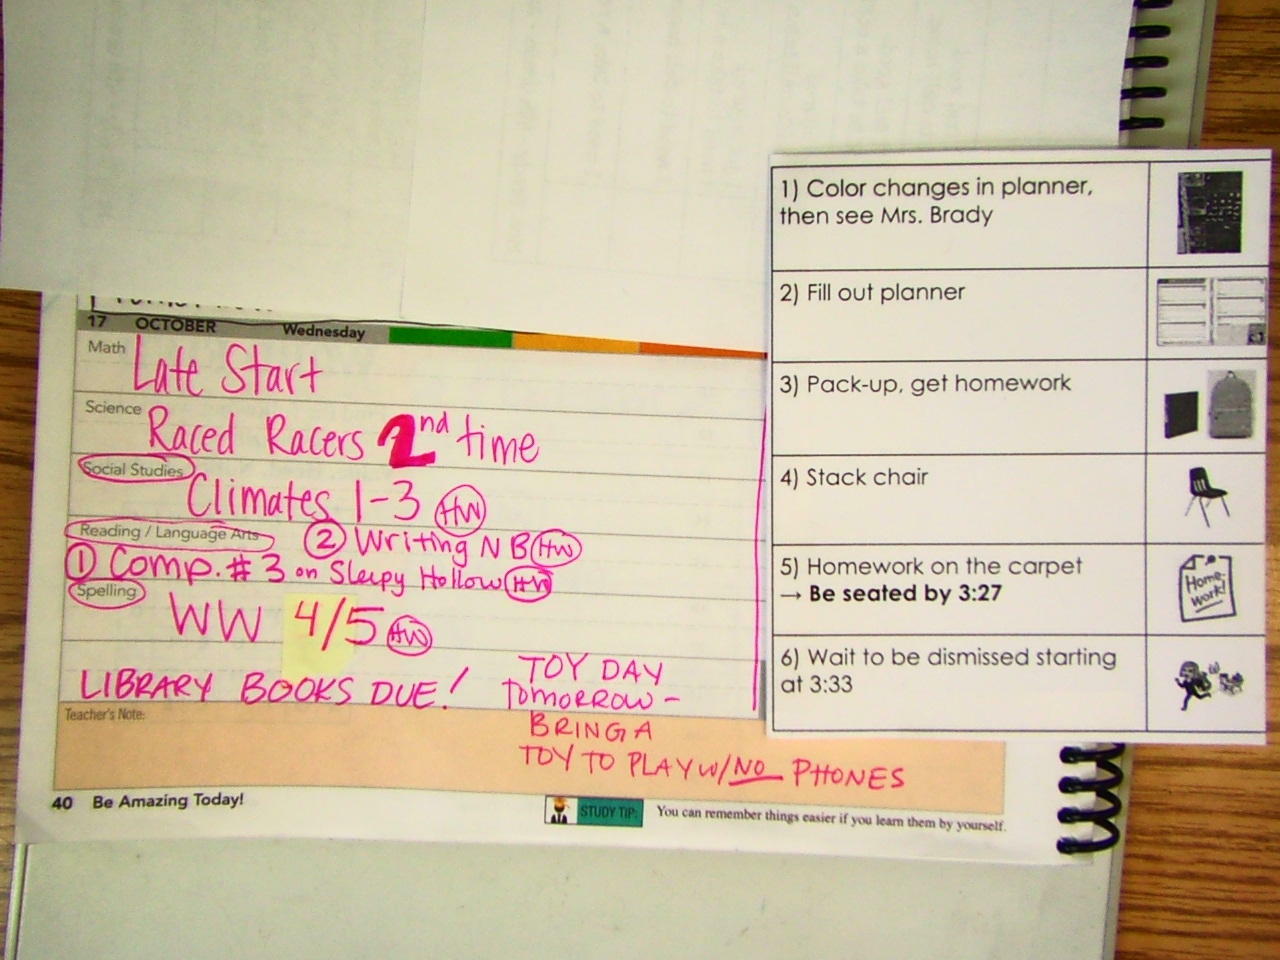 17 OCTOBER Wednesday
Math Late Start
Science Raced Racers 2nd time
Social Studies Climates 1-3 HW
Reading / Language Arts ② Writing NB HW
① Comp. #3 on Sleepy Hollow HW
Spelling WW 4/5 HW
LIBRARY BOOKS DUE!
TOY DAY
TOMORROW -
BRING A
TOY TO PLAY W/ NO PHONES
Teacher's Note:
40 Be Amazing Today!
STUDY TIP: You can remember things easier if you learn them by yourself.
1) Color changes in planner,
then see Mrs. Brady
2) Fill out planner
3) Pack-up, get homework
4) Stack chair
5) Homework on the carpet
→ Be seated by 3:27
Home-
work!
6) Wait to be dismissed starting
at 3:33